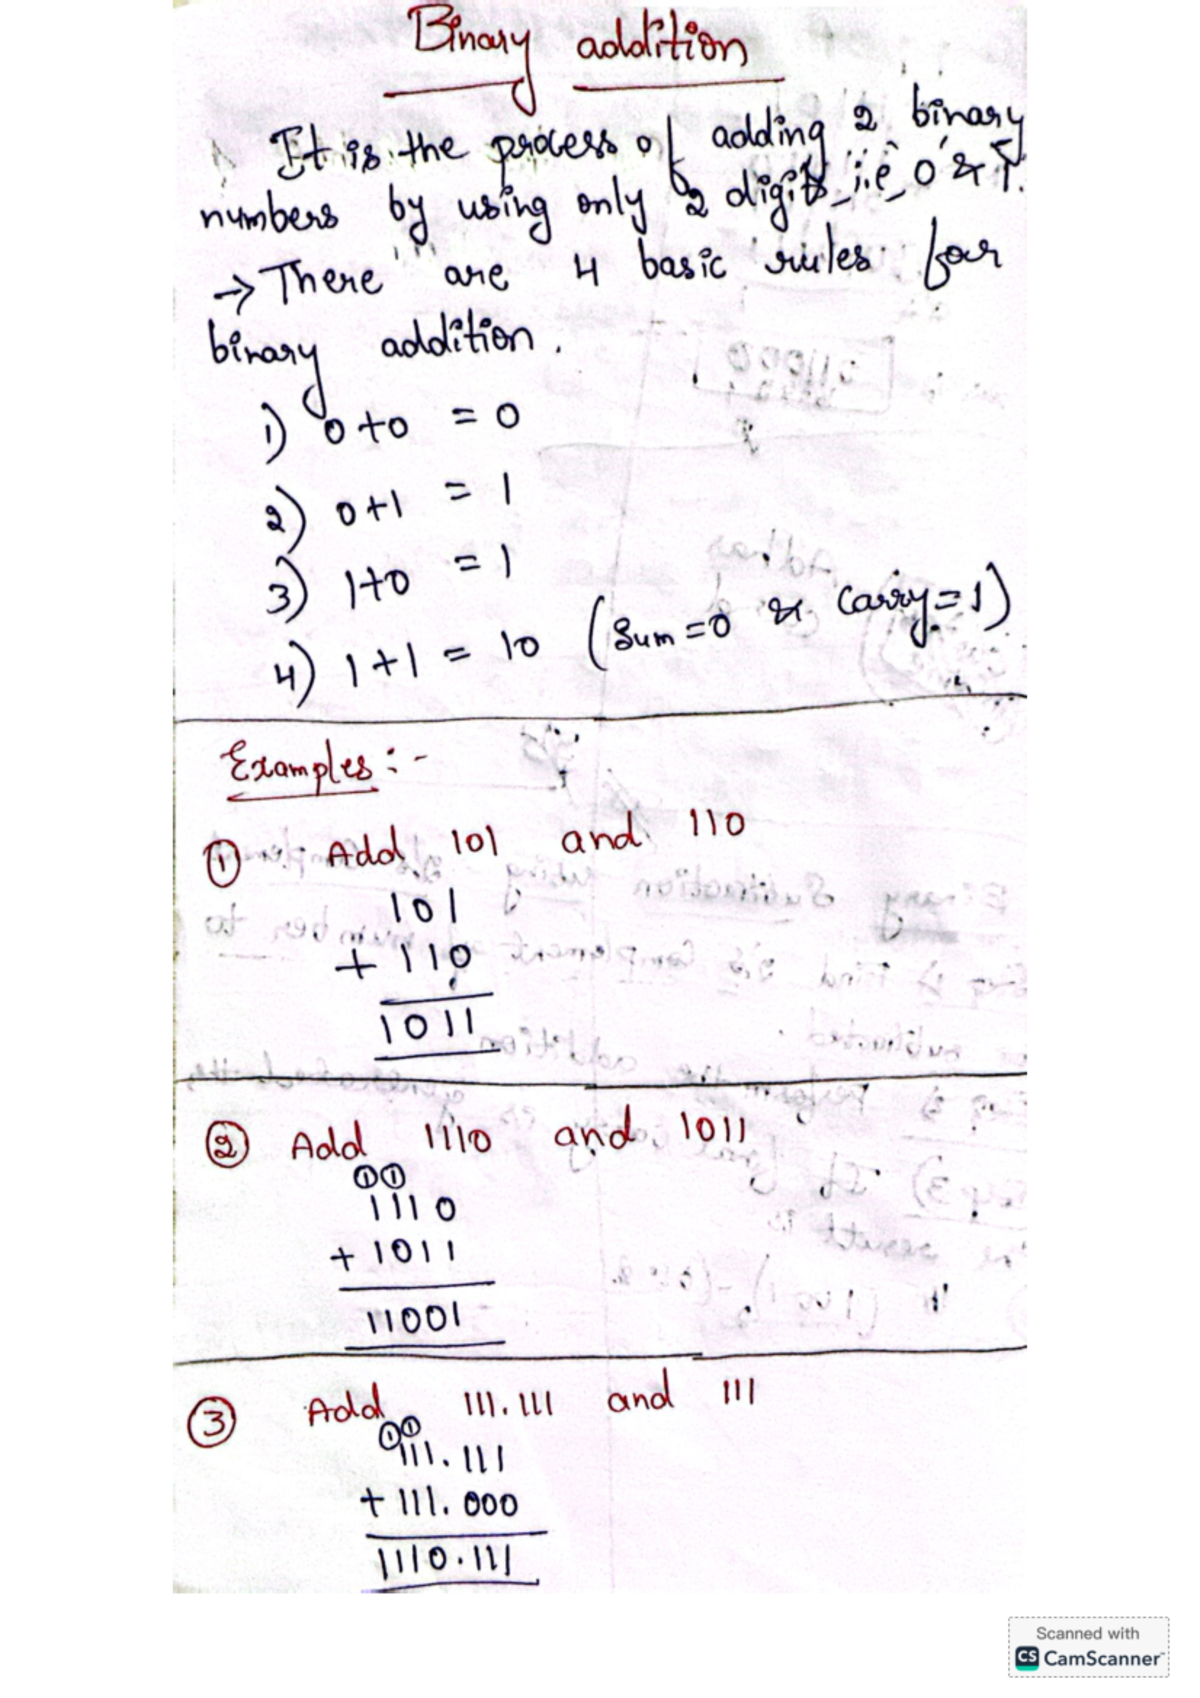 Binary addition
It is the process of adding 2 binary
numbers by using only 2 digits i.e 0 & 1.
→ There are 4 basic rules for
binary addition.
1) 0+0 = 0
2) 0+1 = 1
3) 1+0 = 1
4) 1+1 = 10 (Sum=0 & Carry=1)
Examples:-
① Add 101 and 110
101
+ 110
1011
② Add 1110 and 1011
① ①
1110
+ 1011
11001
③ Add 111.111 and 111
① ①
111.111
+ 111.000
1110.111
Scanned with
CS CamScanner